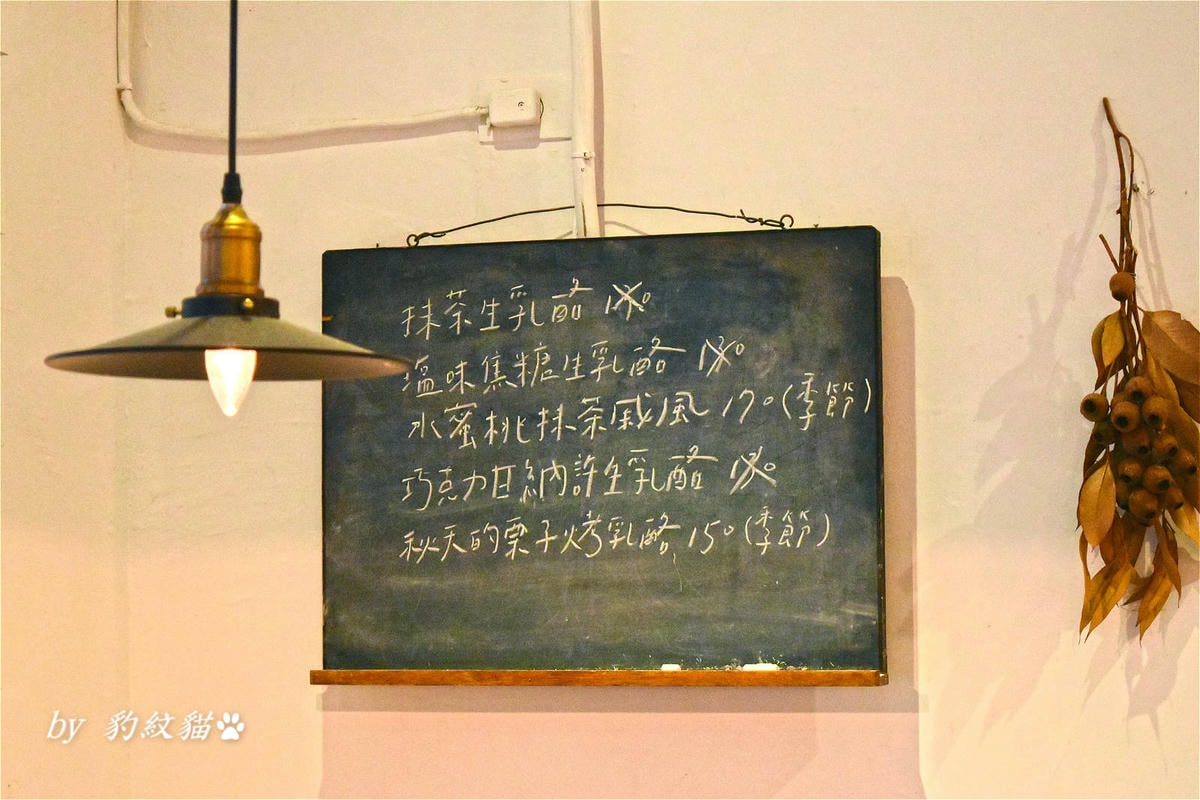 抹茶生乳酪
塩味焦糖生乳酪
水蜜桃抹茶戚風 170(季節)
巧克力甘納許生乳酪
秋天的栗子烤乳酪 150(季節)
by 豹紋貓